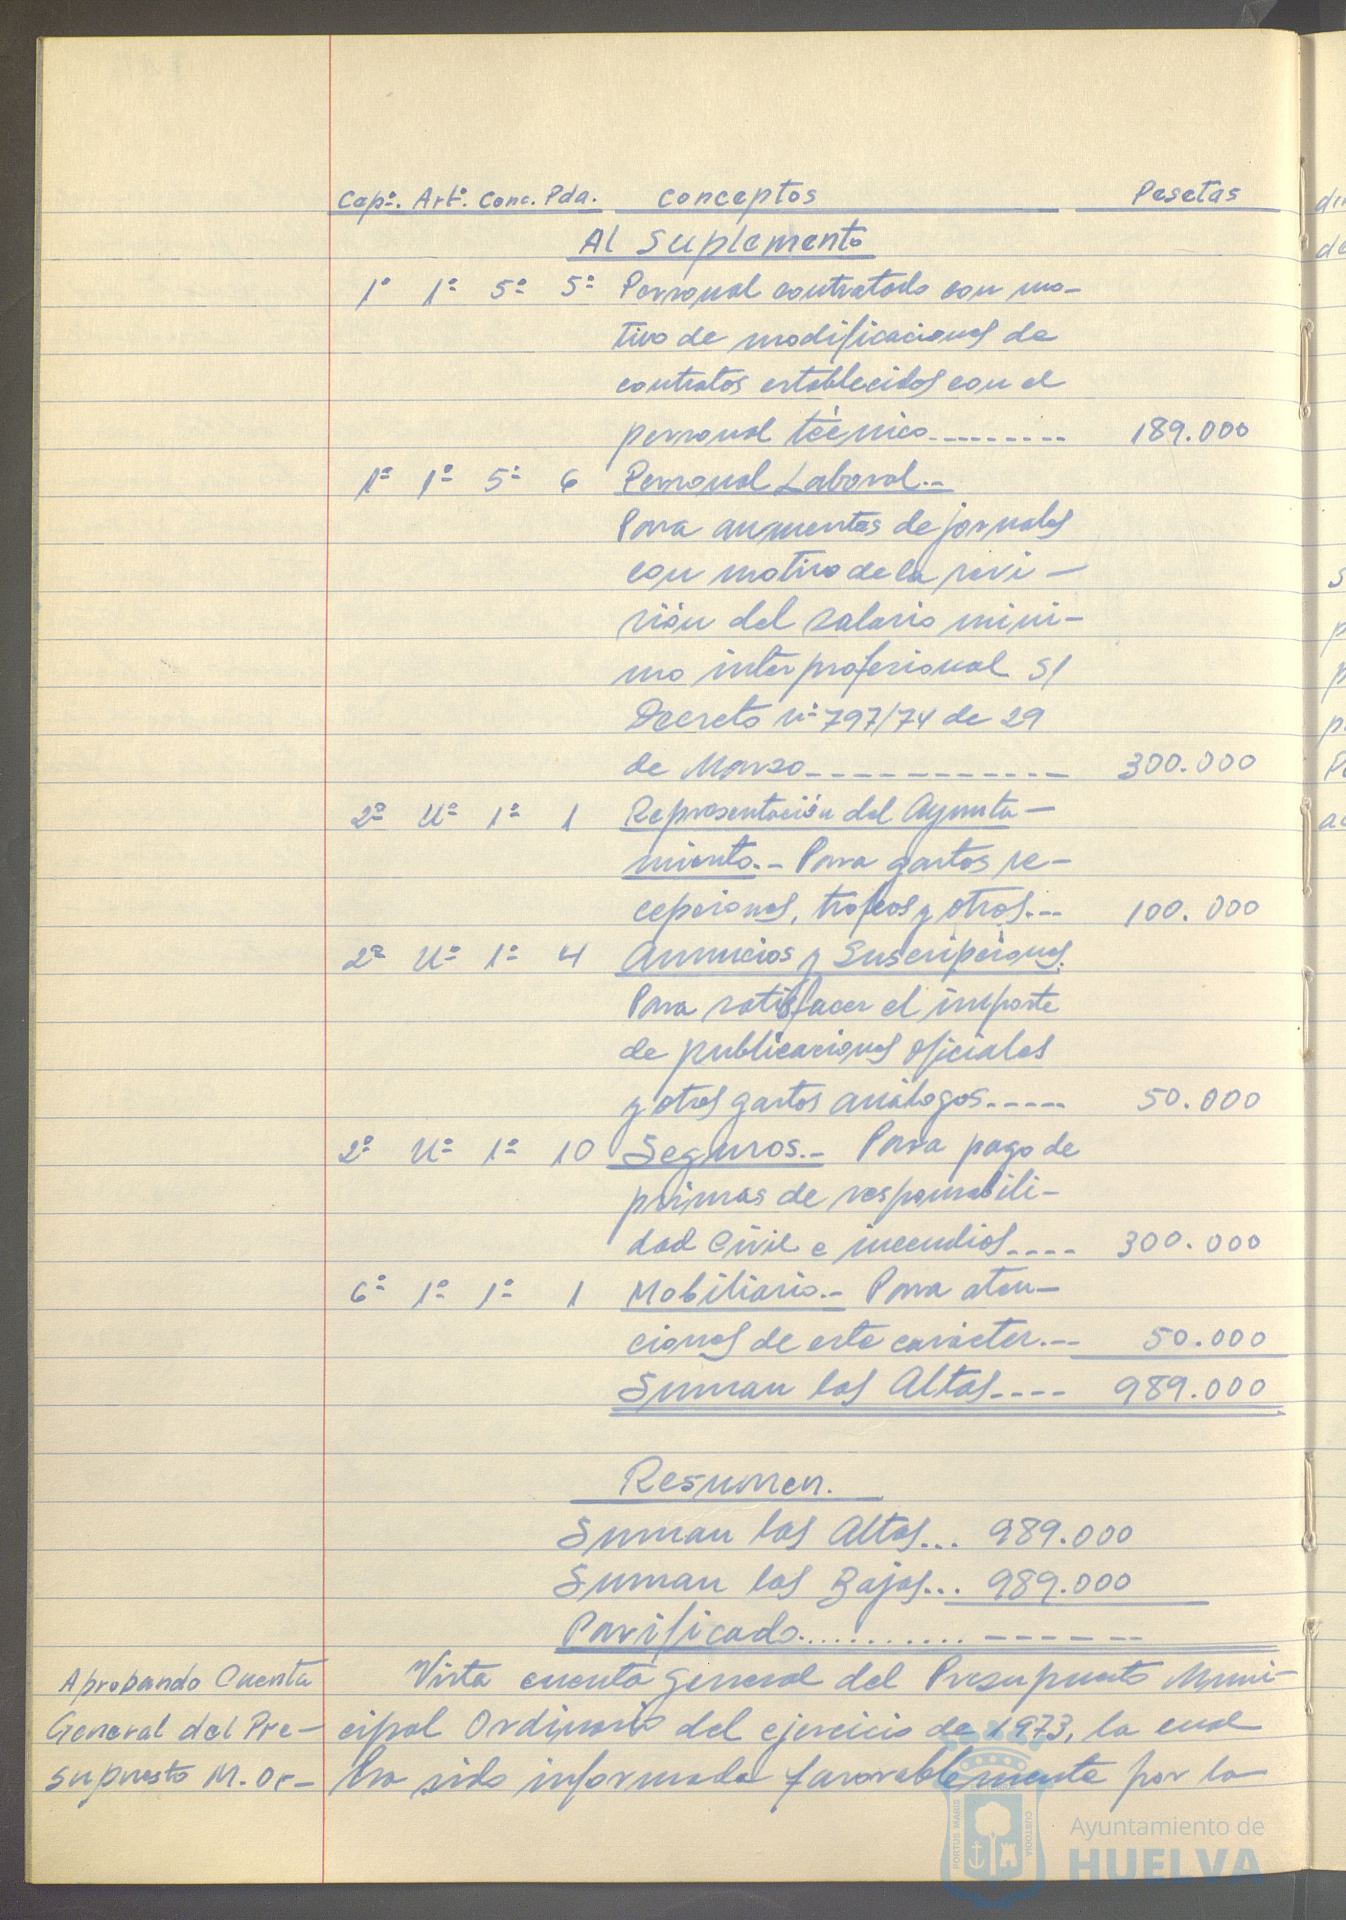 Capº. Artº. Conc. Pda. Conceptos Pesetas
Al Suplemento
1º 1º 5º 5º Personal contratado con mo-
tivo de modificaciones de
contratos establecidos con el
personal técnico--------- 189.000
1º 1º 5º 6 Personal Laboral.-
Para aumentos de jornales
con motivo de la revi-
sión del salario míni-
mo interprofesional s/
Decreto nº 797/74 de 29
de Marzo------------ 300.000
2º Uº 1º 1 Representación del Ayunta-
miento.- Para gastos re-
cepciones, trofeos y otros.-- 100.000
2º Uº 1º 4 Anuncios y Suscripciones.
Para satisfacer el importe
de publicaciones oficiales
y otros gastos análogos----- 50.000
2º Uº 1º 10 Seguros.- Para pago de
primas de responsabili-
dad Civil e incendios---- 300.000
6º 1º 1º 1 Mobiliario.- Para aten-
ciones de este carácter.-- 50.000
Suman las Altas---- 989.000
Resumen.
Suman las Altas... 989.000
Suman las Bajas... 989.000
Parificado........... ------
Aprobando Cuenta
General del Pre-
supuesto M. Or-
Vista cuenta general del Presupuesto Muni-
cipal Ordinario del ejercicio de 1973, la cual
ha sido informada favorablemente por la
PORTUS MARIS
CUSTODIA
Ayuntamiento de
HUELVA